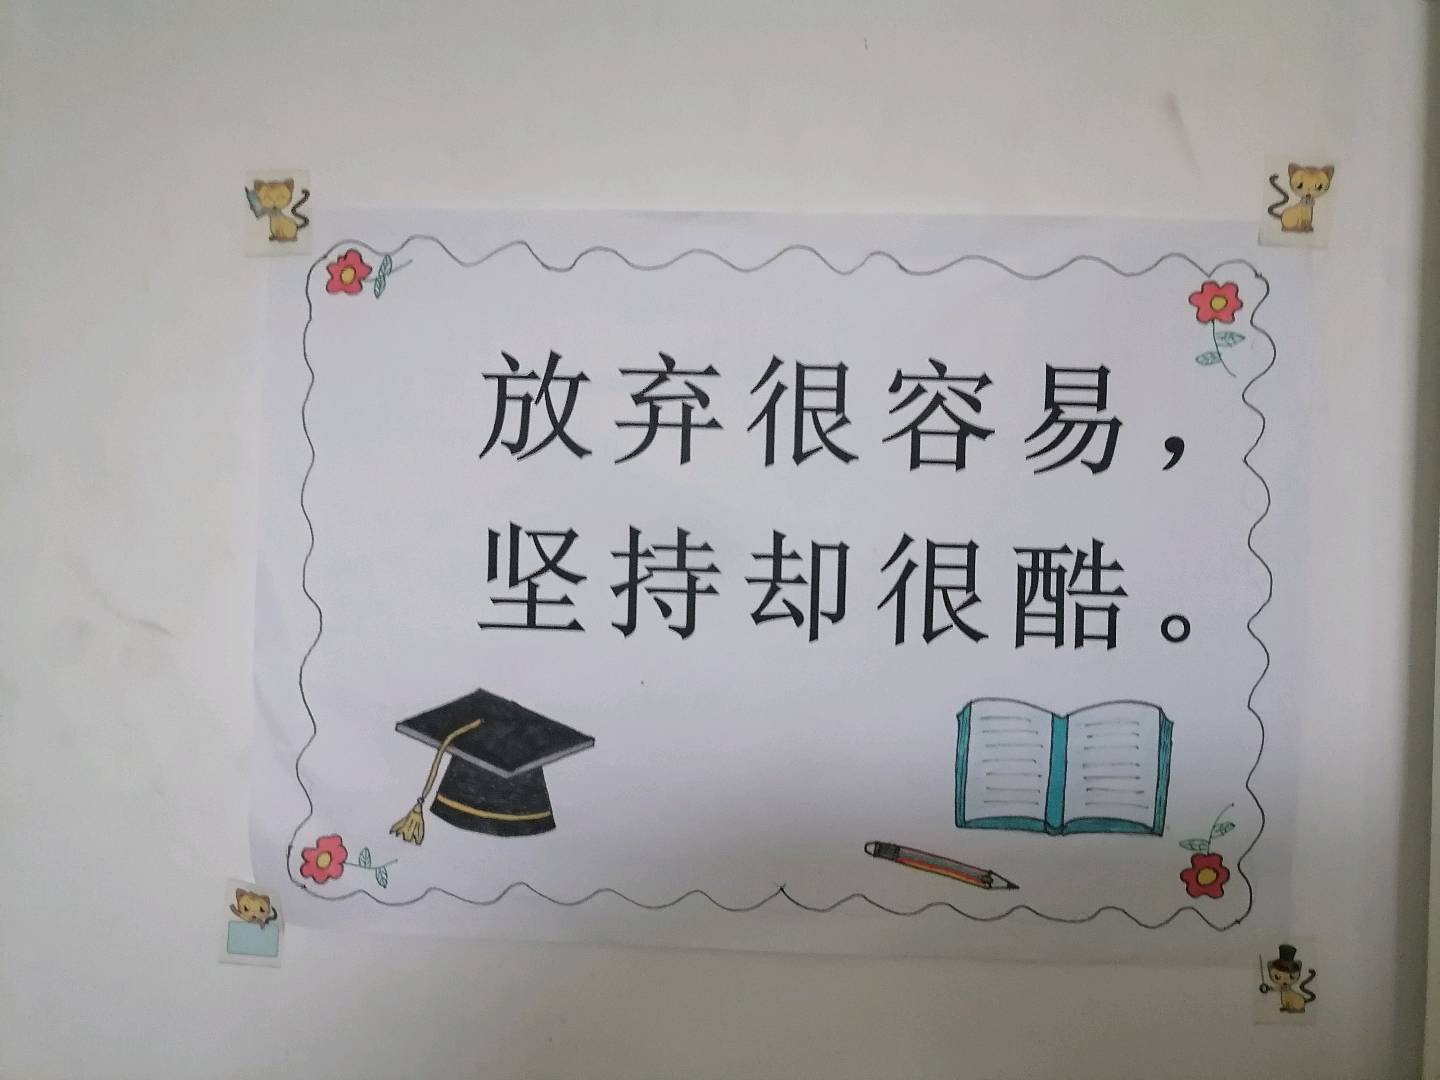 放弃很容易，
坚持却很酷。